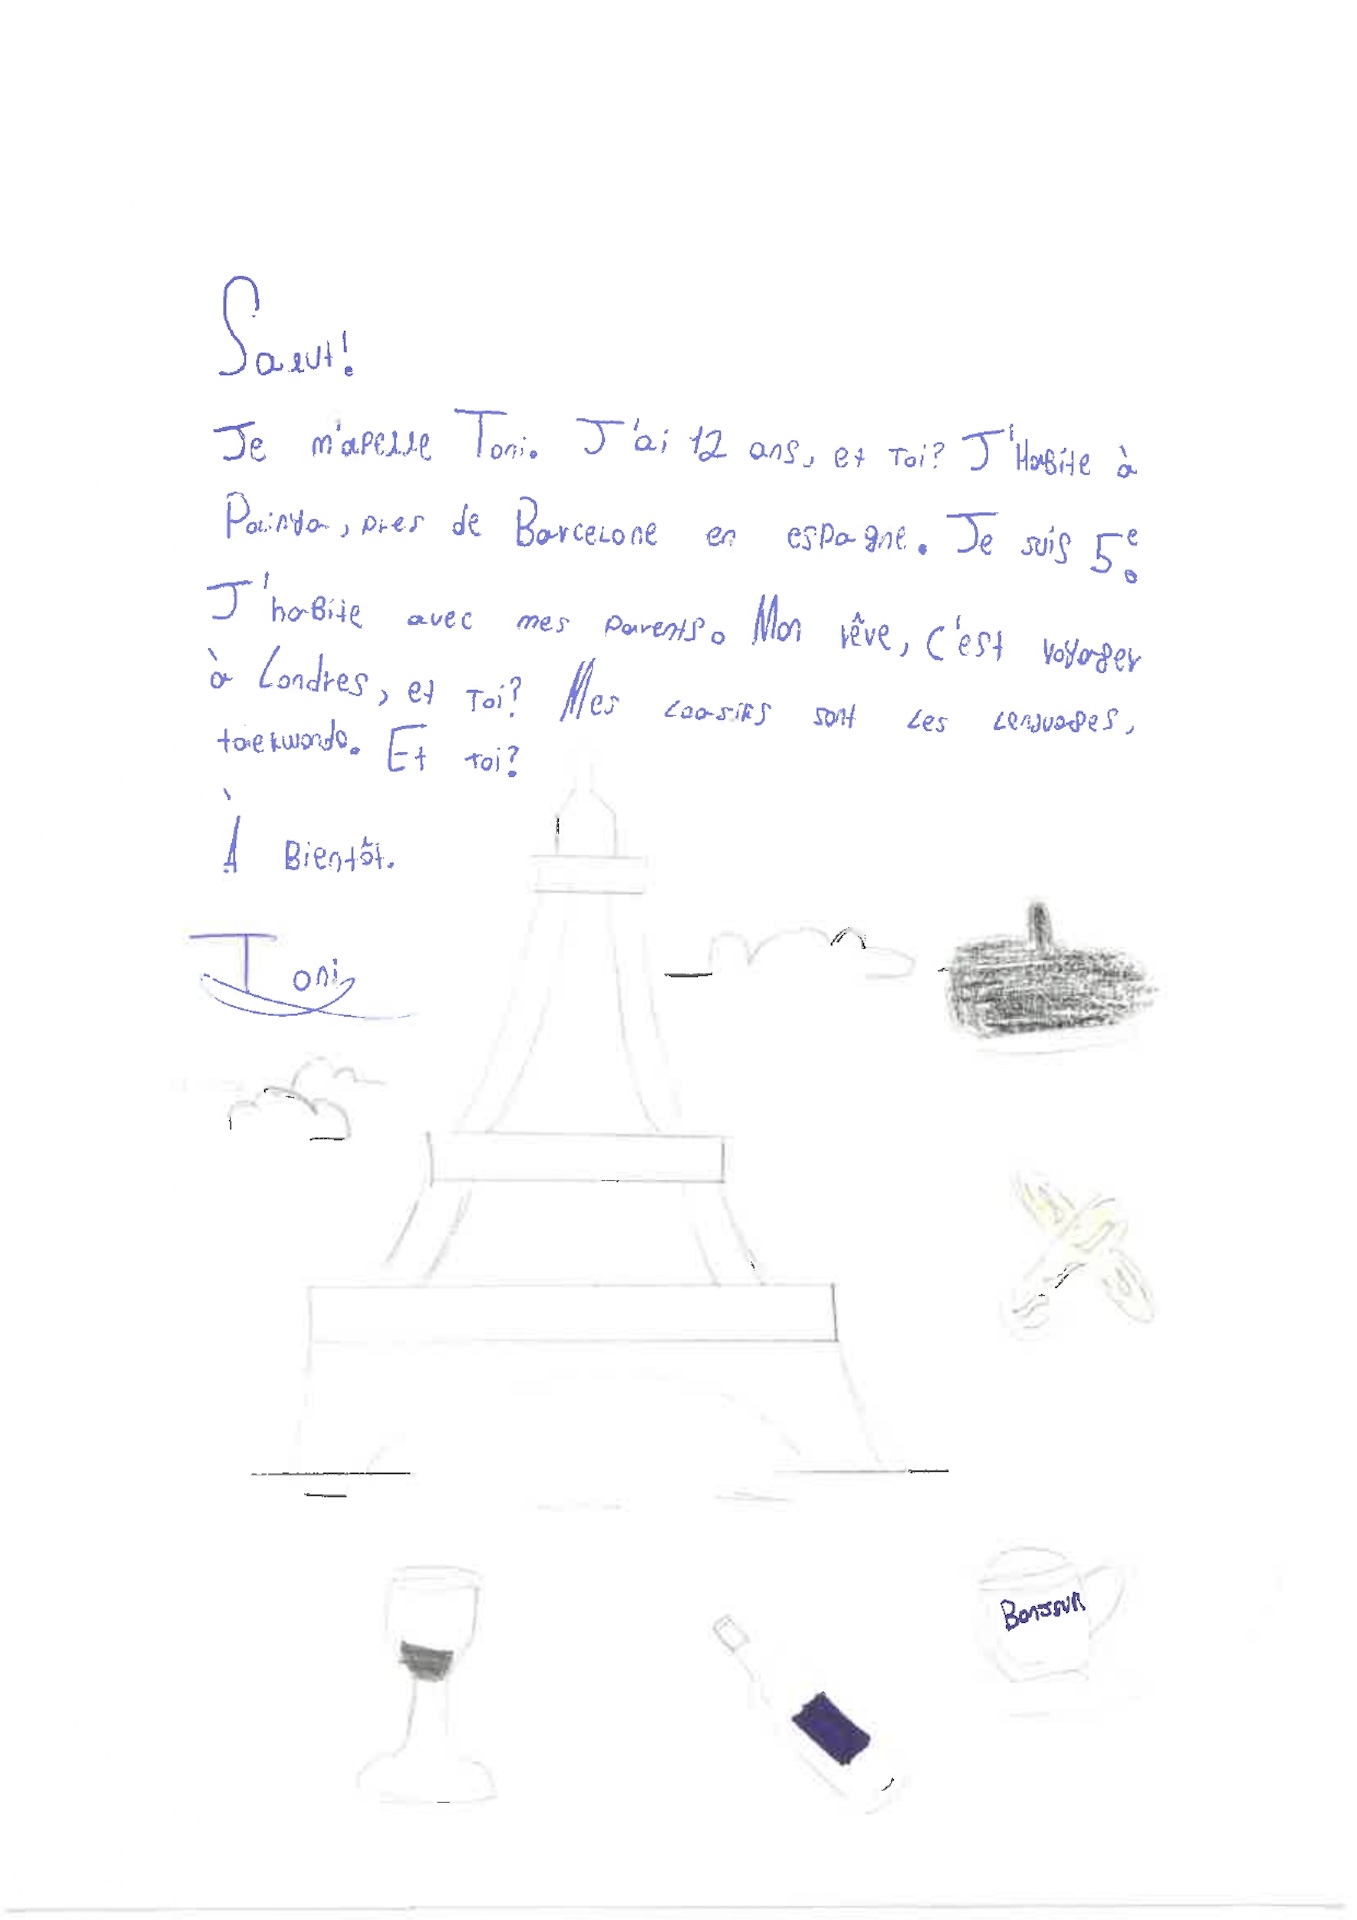 Salut!
Je m'apelle Toni. J'ai 12 ans, et toi? J'Habite à
Polinya, pres de Barcelone en espagne. Je suis 5e.
J'habite avec mes parents. Mon rêve, c'est voyager
à Londres, et toi? Mes sont les lenguages,
taekwondo. Et toi?
À Bientôt.
Toni
BONJOUR